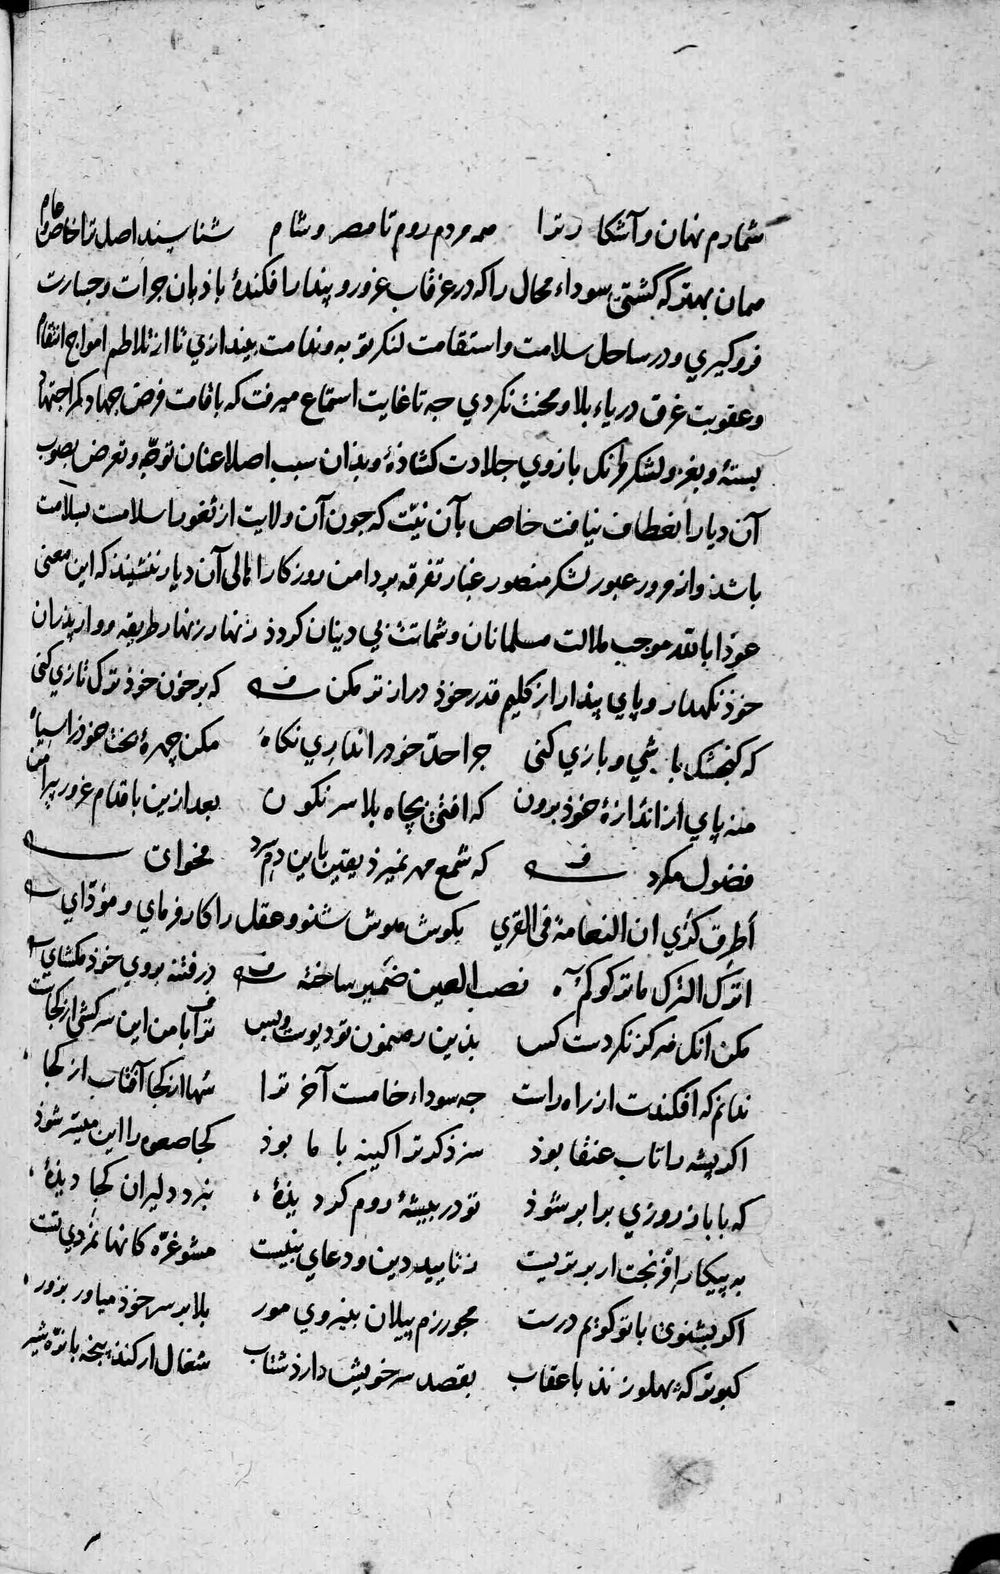 شمارم نهان و آشکار ترا همه مردم روم تا مصر و شام شناسند اصل ترا خاص و عام
همان بهتر که کشتی سوداء محال را که در غرقاب غرور و پندار افکندهٔ باذبان جرات و جسارت
فرو کیری و در ساحل سلامت و استقامت لنکر توبه و ندامت بیندازی تا از تلاطم امواج انتقام
و عقوبت غرق دریاء بلا و محنت نکردی جه تا غایت استماع میرفت که باقامت فرض جهاد کمر اجتهاد
بستهٔ و بغزو لشکر فرنک بازوی جلادت کشاذهٔ و بذان سبب اصلا عنان توجّه و تعرض بصوب
آن دیار انعطاف نیافت خاص بآن نیّت که جون آن ولایت از ثغور اسلامست بسلامت
باشذ و از مرور عبور لشکر منصور غبار تفرقه بر دامن روزکار اهالی آن دیار ننشیند که این معنی
عوذا بالله موجب ملالت مسلمانان و شماتت بی دینان کردذ زنهار زنهار طریقه و وار پذران
خوذ نکهدار و پای پندار از کلیم قدر خوذ دراز تر مکن که بر خون خوذ ترک تازی کنی
که کنجشک باشی و بازی کنی جرا حدّ خود را نداری نکاه مکن چهرهٔ بخت خوذ را سیاه
منه پای از اندازهٔ خوذ برون که افتی بچاه بلا سرنکون بعد ازین باقدام غرور پیرامن
فضول مکرد که شمع مهر نمیرذ یقین باین دم سرد مخوان
أطرق کری ان النعامة فی القری بکوش هوش شنو و عقل را کار فرمای و مؤدّای
اترک الترک ما ترکوکم نصب العین ضمیر ساخته در فتنه بروی خوذ مکشای
مکن انک هرکز نکردست کس بذین رهنمون تو دیوست و بس ترا با من این سرکشی از کجاست
ندانم که افکندت از راه راست جه سوداء خامست آخر ترا سُها از کجا آفتاب از کجا
اکر پشه را تاب عنقا بوذ سزذ کر ترا کینه با ما بوذ کجا صعوه را این میسّر شوذ
که با باز روزی برابر شوذ تو در بیشهٔ روم کرد بذهٔ نبرد دلیران کجا دیذهٔ
به پیکار افرنجت ار برتریست ز تایید دین و دعای نبیست مشو غرّه کانها نمردی تست
اکر بشنوی با تو کویم درست مجو رزم پیلان بنیروی مور بلا بر سر خوذ میاور بزور
کبوتر که پهلو زند با عقاب بقصد سر خویش دارذ شتاب شغال ار کند پنجه با نره شیر